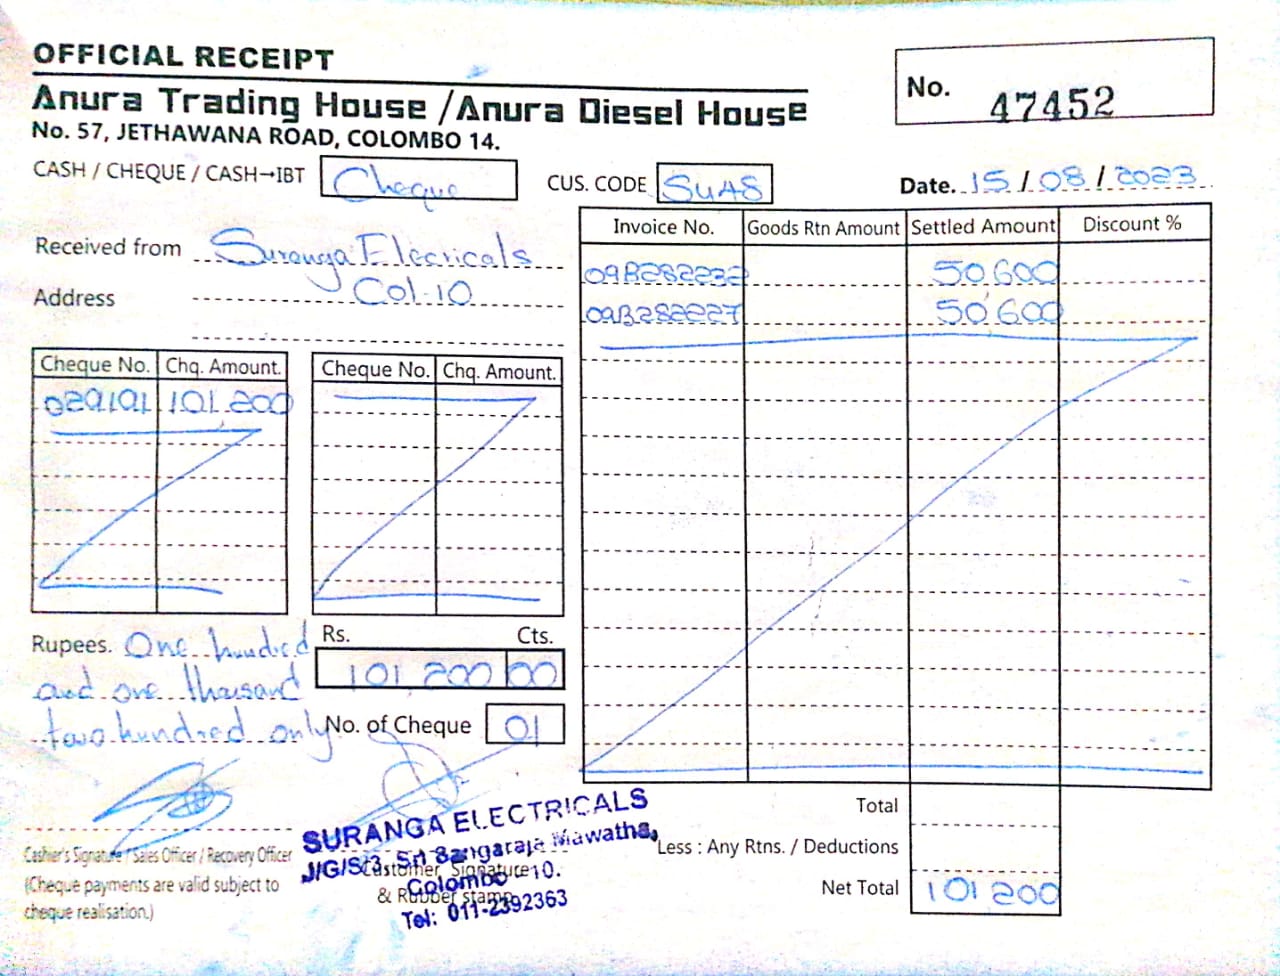 OFFICIAL RECEIPT
Anura Trading House / Anura Diesel House
No. 57, JETHAWANA ROAD, COLOMBO 14.
No. 47452
CASH / CHEQUE / CASH→IBT Cheque
CUS. CODE SUAS
Date. 15 / 08 / 2023
Received from Suranga Elecricals
Address Col-10
Invoice No. Goods Rtn Amount Settled Amount Discount %
09B282232 50,600
09B282227 50,600
Cheque No. Chq. Amount. Cheque No. Chq. Amount.
029191 101,200
Rupees. One hundred
and one thousand
two hundred only
Rs. Cts.
101,200 00
No. of Cheque 01
Total
Less : Any Rtns. / Deductions
Net Total 101,200
Cashier's Signature / Sales Officer / Recovery Officer
(Cheque payments are valid subject to
cheque realisation.)
Customer Signature
& Rubber stamp
SURANGA ELECTRICALS
J/G/S/3, Sri Sangaraja Mawatha,
Colombo 10.
Tel: 011-2392363